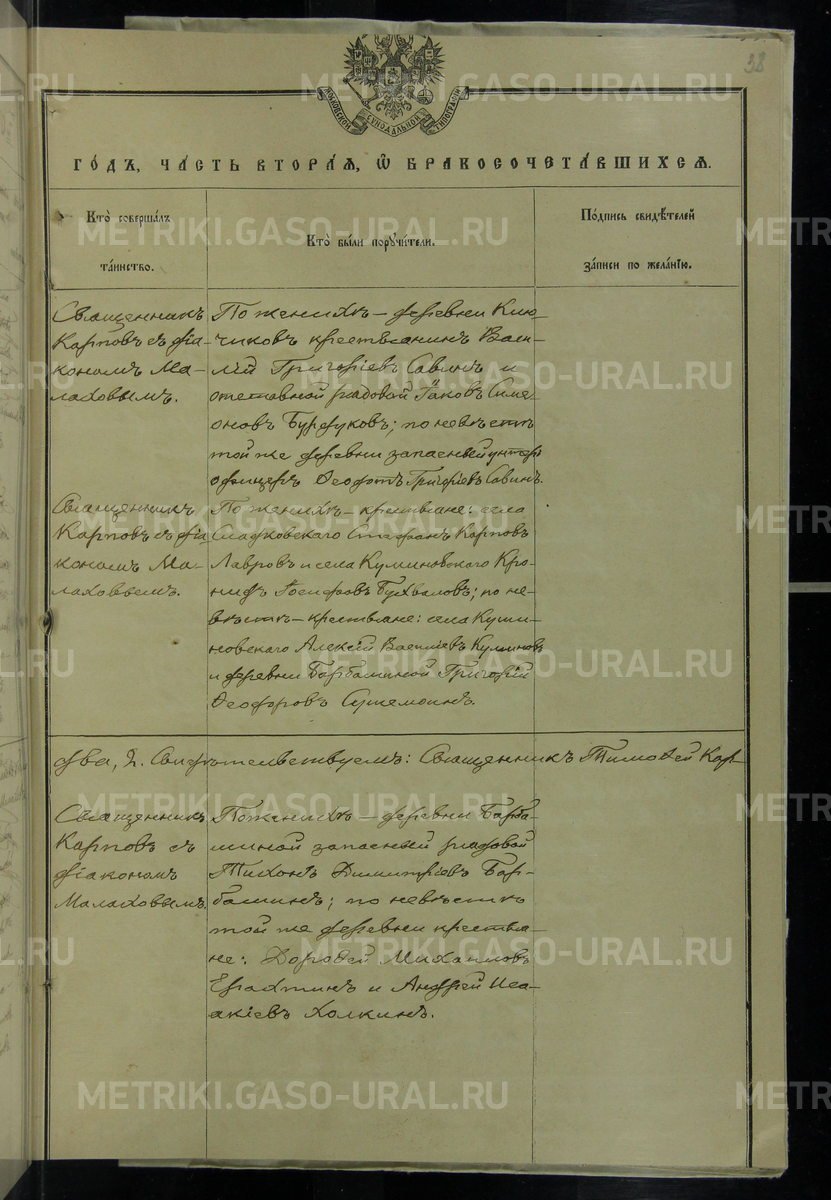 38
МОСКОВСКОЙ СѴНОДАЛЬНОЙ ТИПОГРАФІИ
ГОДЪ, ЧАСТЬ ВТОРАЯ, Ѡ БРАКОСОЧЕТАВШИХСЯ.
Кто совершалъ
таинство.
Кто были поручители.
Подпись свидѣтелей
записи по желанію.
Священникъ
Карповъ съ діа-
кономъ Ма-
лаховымъ.
По женихѣ – деревни Клю-
чиковъ крестьянинъ Васи-
лій Григоріевъ Савинъ и
отставной рядовой Іаковъ Симе-
оновъ Бурдуковъ; по невѣстѣ
той же деревни запасный унтеръ
офицеръ Ѳеофотъ Григоріевъ Савинъ.
Священникъ
Карповъ съ діа-
кономъ Ма-
лаховымъ.
По женихѣ – крестьяне: села
Сладковскаго Стефанъ Карповъ
Лавровъ и села Куминовскаго Кро-
нидъ Іосифовъ Бухваловъ; по не-
вѣстѣ – крестьяне: села Куми-
новскаго Алексій Васильевъ Куминовъ
и деревни Барбашиной Григорій
Ѳеодоровъ
два, 2. Свидѣтельствуемъ: Священникъ Тимоѳей Кар-
Священникъ
Карповъ съ
діакономъ
Малаховымъ.
По женихѣ – деревни Барба-
шиной запасный рядовой
Тихонъ Димитріевъ Бар-
башинъ; по невѣстѣ
той же деревни крестья-
не: Дороѳей Михаиловъ
Елахтинъ и Андрей Иса-
акіевъ Холкинъ.
METRIKI.GASO-URAL.RU